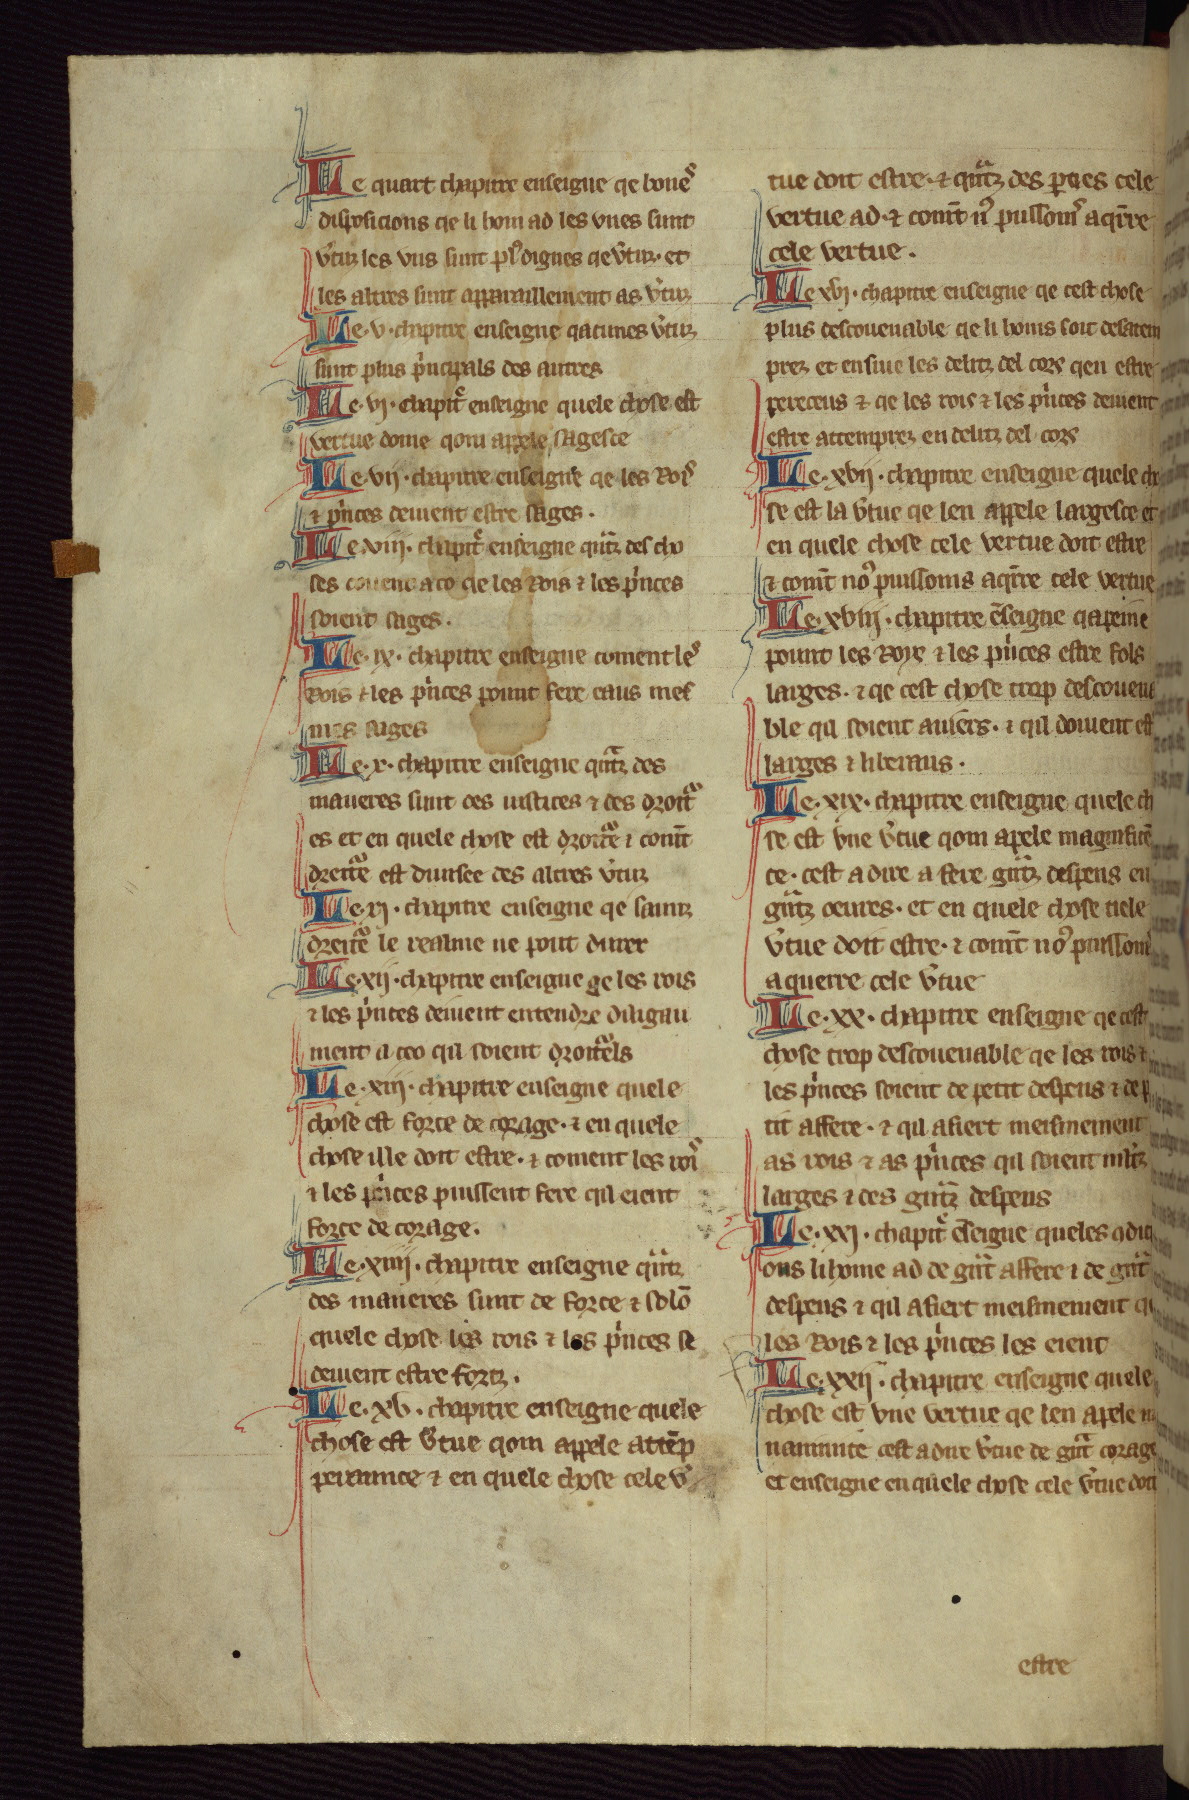 Le quart chapitre enseigne qe bones
disposicions qe li hom ad les vnes sunt
v̾tuz les vns sunt pl᷒ dignes qe v̾tuz · et
les altres sunt apparaillement as v̾tuz
Le · v · chapitre enseigne qacunes v̾tuz
sunt plus p̍ncipals des autres
Le · vi · chapit᷒ enseigne quele chose est
vertue dome qom appele sagesce
Le · vii · chapitre enseigne qe les Rois
⁊ p̍nces deiuent estre sages .
Le viii · chapit᷒ enseigne quāz des cho
ses couent a co qe les Rois ⁊ les p̍nces
soient sages .
Le · ix · chapitre enseigne coment les
Rois ⁊ les p̍nces pount fere eaus mes
mes sages
Le · x · chapitre enseigne quāz des
maneres sunt des iustices ⁊ des droit
es et en quele chose est droite ⁊ comt̄
dreite est diuisee des altres v̾tuz
Le · xi · chapitre enseigne qe sainz
dreite le realme ne pout durer
Le · xii · chapitre enseigne qe les rois
⁊ les p̍nces deiuent entendre diligau
ment a ceo qil soient droitels
Le · xiii · chapitre enseigne quele
chose est force de corage · ⁊ en quele
chose ille doit estre · ⁊ coment les rois
⁊ les p̍nces puissent fere qil eient
force de corage .
Le · xiiii · chapitre enseigne quāz
des maneres sunt de force ⁊ solō
quele chose les rois ⁊ les p̍nces se
deiuent estre fortz .
Le · xv · chapitre enseigne quele
chose est v̾tue qom appele attēp
perannce ⁊ en quele chose cele v̾
tue doit estre · ⁊ quāz des p̱ties cele
vertue ad · ⁊ comt̄ n᷒ puissoms aq̍rre
cele vertue .
Le xvi · chapitre enseigne qe cest chose
plus descouenable qe li homs soit desatem
prez et ensiue les delitz del cors qen estre
pereceus ⁊ qe les rois ⁊ les p̍nces deiuent
estre attemprez en delitz del cors
Le · xvii · chapitre enseigne quele cho
se est la v̾tue qe len appele largesce et
en quele chose cele vertue doit estre
⁊ comt̄ no᷒ puissoms aq̍rre cele vertue
Le · xviii · chapitre ēseigne qapeine
pount les Roys ⁊ les p̍nces estre fols
larges · ⁊ qe cest chose trop descouena
ble qil soient auiers · ⁊ qil doiuent est
larges ⁊ liberaus .
Le · xix · chapitre enseigne quele ch
se est vne v̾tue qom apele magnificē
ce · cest a dire a fere gātz despens en
gātz oeures · et en quele chose tiele
v̾tue doit estre · ⁊ comt̄ no᷒ puissoms
aquerre cele v̾tue
Le · xx · chapitre enseigne qe cest
chose trop descouenable qe les rois ⁊
les p̍nces soient de petit despens ⁊ de p
tit affere · ⁊ qil afiert meismement
as rois ⁊ as p̍nces qil soient mltz
larges ⁊ des gātz despens
Le · xxi · chapit᷒ ēseigne queles ꝯdici
ons li home ad de gāt affere ⁊ de gāt
despens ⁊ qil afiert meismement qe
les Rois ⁊ les p̍nces les eient
Le · xxii · chapitre enseigne quele
chose est vne vertue qe len apele m
nanimite cest a dire v̾tue de gāt corage
et enseigne en quele chose cele v̾tue doit
estre